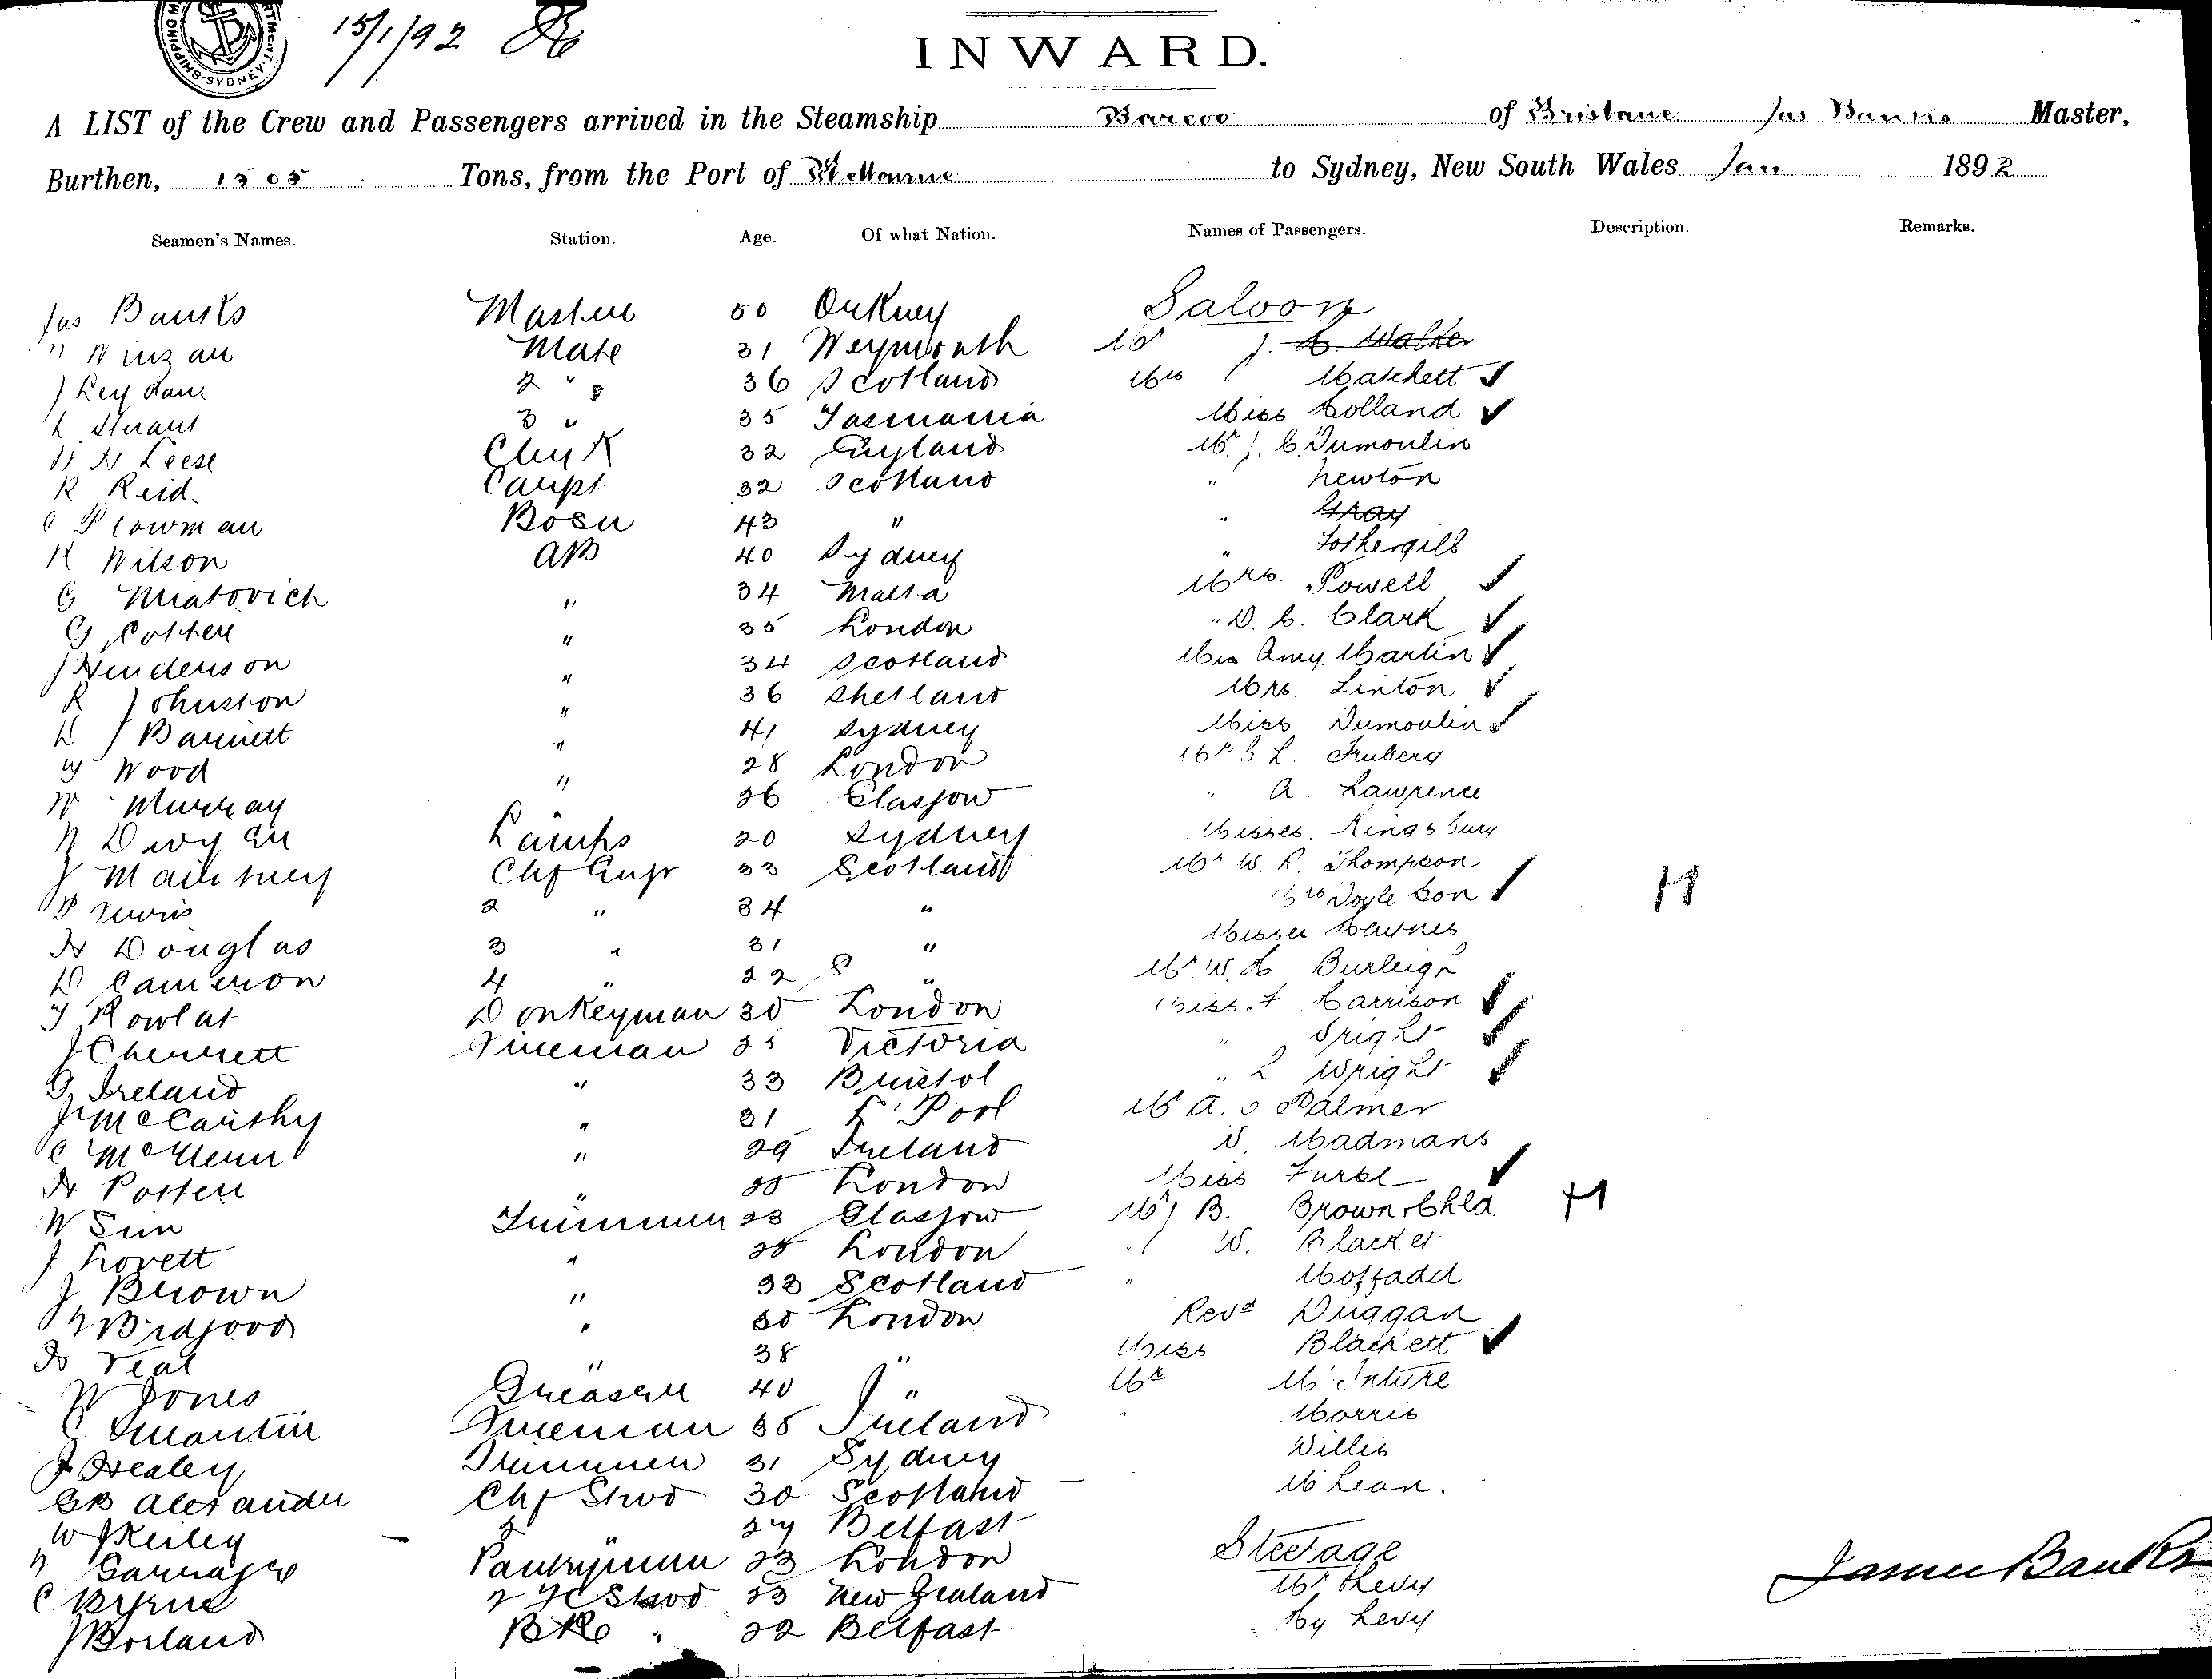 SYDNEY
15/1/92
INWARD.
A LIST of the Crew and Passengers arrived in the Steamship Barcoo of Brisbane Jas Banks Master,
Burthen, 1505 Tons, from the Port of Melbourne to Sydney, New South Wales Jan 1892
Seamen's Names. Station. Age. Of what Nation. Names of Passengers. Description. Remarks.
Saloon
Jas Banks Master 50 Orkney
Mate 31 Weymouth Mr J. C. Walker
J Leydan 2 " 36 Scotland Mrs Matchett ✓
Stuart 3 " 35 Tasmania Miss Holland ✓
Leese Clerk 32 England Mr J. C. Dumoulin
R Reid Carpt 32 Scotland " Newton
Plowman Bosn 43 " " Gray
Wilson AB 40 Sydney " Fothergill
G Miatovich " 34 Malta Mrs. Powell ✓
G Cotter " 35 London " D. C. Clark ✓
J Henderson " 34 Scotland Miss Amy Martin ✓
R Johnston " 36 Shetland Mrs. Linton ✓
Barnett " 41 Sydney Miss Dumoulin ✓
Wood " 28 London Mr L. Fruberg
W Murray " 26 Glasgow " A. Lawrence
Dwyer Lamps 20 Sydney Misses. Kingsbury
Chf Engr 33 Scotland Mr W. R. Thompson
2 " 34 " Mrs Doyle Son ✓ H
H Douglas 3 " 31 " Misses
D Cameron 4 " 22 " Mr W. H Burleigh
Rowlat Donkeyman 30 London Miss. F Harrison ✓
J Chennett Fireman 25 Victoria " Wright ✓
G Ireland " 33 Bristol " L Wright ✓
J McCarthy " 31 L'Pool Mr A. Palmer
" 29 Ireland W. Madmans
H Potter " London Miss ✓
W Sim Trimmer 23 Glasgow Mr J B. Brown & Chld. H
J Lovett " London " W.
J Brown " 33 Scotland " Moffadd
Bidgood " 30 London Revd Duggan
H Veal " 38 " Miss Blackett ✓
W Jones Greaser 40 " Mr McInture
Fireman 38 Ireland " Morris
J Healey Trimmer 31 Sydney Willis
GB Alexander Chf Stwd 30 Scotland McLean.
W J Keiley 2 " 27 Belfast
Steerage
Pantryman 23 London Mr Levy
C Byrne Stwd 23 New Zealand Hy Levy
J Borland " 22 Belfast
James Banks